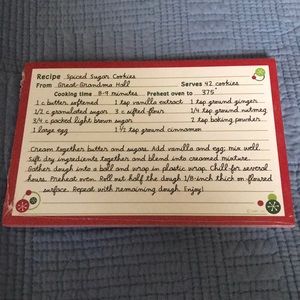 Recipe Spiced Sugar Cookies
From Great-Grandma Hall Serves 42 cookies
Cooking time 8-9 minutes Preheat oven to 375°
1 c butter, softened 1 tsp vanilla extract 1 tsp ground ginger
1/2 c granulated sugar 3 c sifted flour 1/4 tsp ground nutmeg
3/4 c packed light brown sugar 2 tsp baking powder
1 large egg 1 1/2 tsp ground cinnamon
Cream together butter and sugars. Add vanilla and egg; mix well.
Sift dry ingredients together and blend into creamed mixture.
Gather dough into a ball and wrap in plastic wrap. Chill for several
hours. Preheat oven. Roll out half the dough 1/8-inch thick on floured
surface. Repeat with remaining dough. Enjoy!